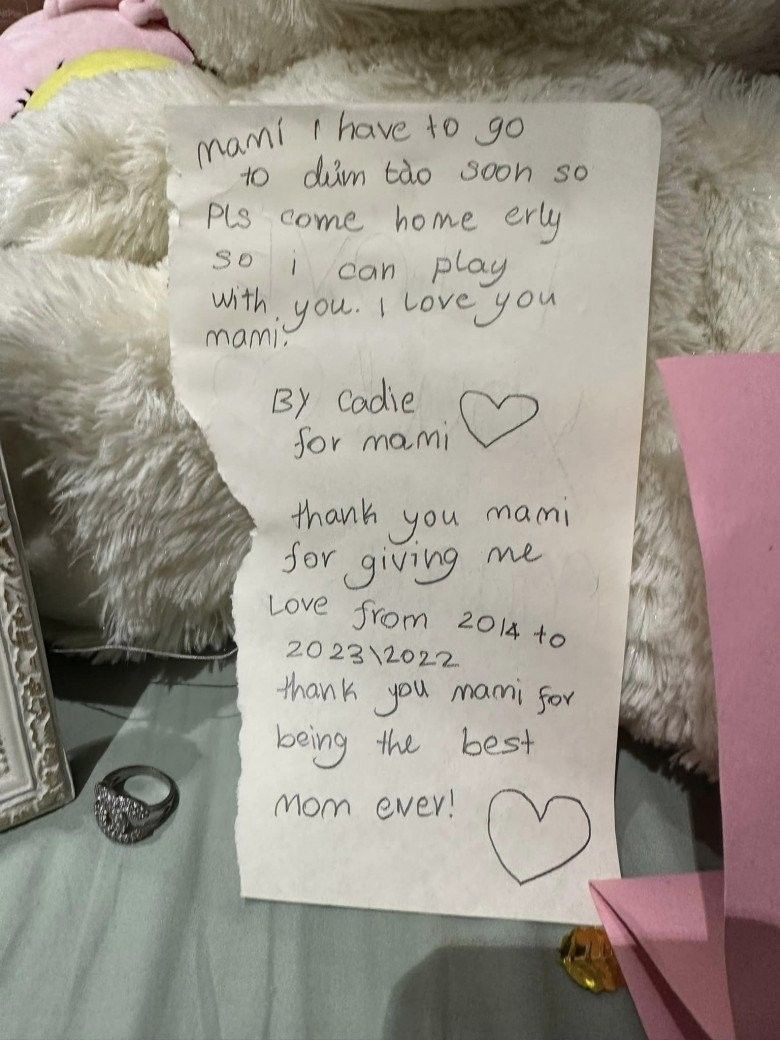 mami I have to go
to dưm tào soon so
Pls come home erly
so i can play
with you. I Love you
mami.
By Cadie
for mami
thank you mami
for giving me
Love from 2014 to
2023\2022
thank you mami for
being the best
Mom ever!